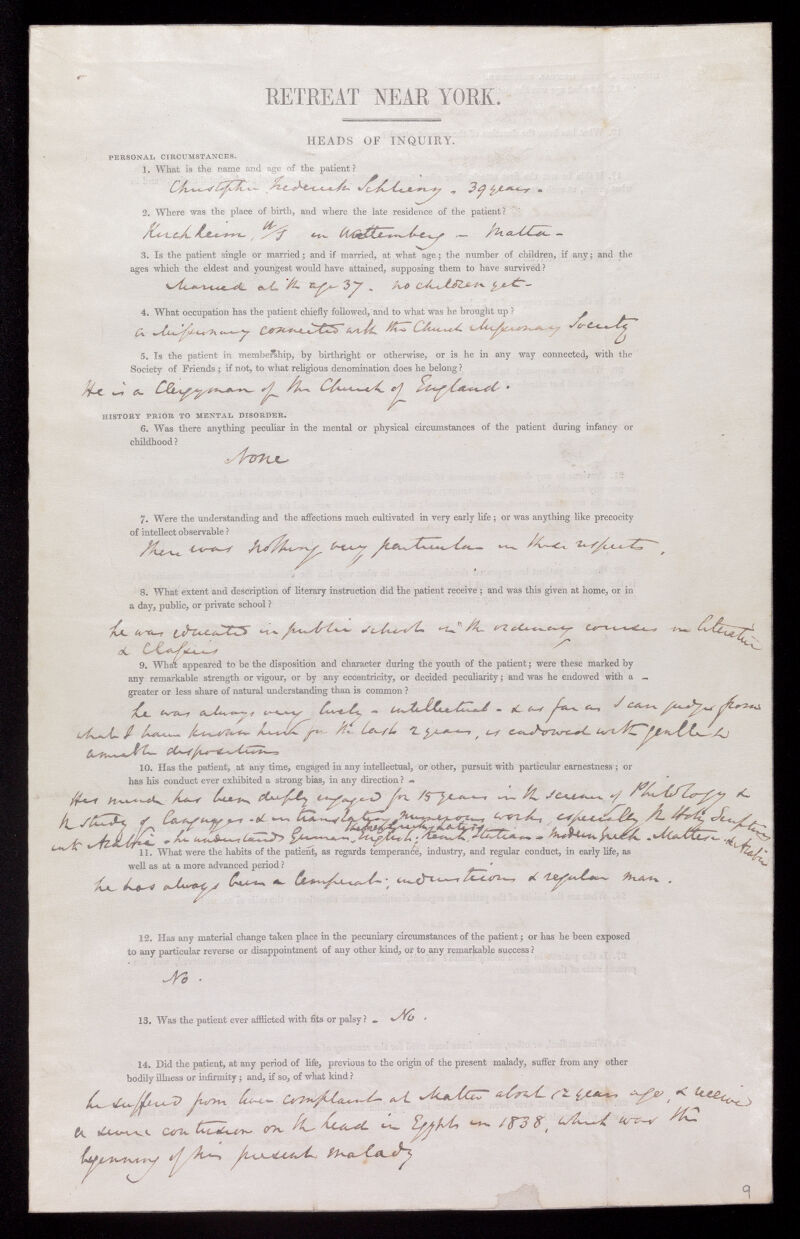 RETREAT NEAR YORK.
HEADS OF INQUIRY.
PERSONAL CIRCUMSTANCES.
1. What is the name and age of the patient?
Christopher Frederick Schlienz - 39 years -
2. Where was the place of birth, and where the late residence of the patient?
Kirchheim, in - Malta -
3. Is the patient single or married; and if married, at what age; the number of children, if any; and the
ages which the eldest and youngest would have attained, supposing them to have survived?
Married at the age 37 - no children yet -
4. What occupation has the patient chiefly followed, and to what was he brought up?
a Missionary connected with the Church Missionary Society
5. Is the patient in membership, by birthright or otherwise, or is he in any way connected, with the
Society of Friends; if not, to what religious denomination does he belong?
He is a Clergyman of the Church of England.
HISTORY PRIOR TO MENTAL DISORDER.
6. Was there anything peculiar in the mental or physical circumstances of the patient during infancy or
childhood?
None
7. Were the understanding and the affections much cultivated in very early life; or was anything like precocity
of intellect observable?
There was nothing very particular in these respects.
8. What extent and description of literary instruction did the patient receive; and was this given at home, or in
a day, public, or private school?
he was educated in public schools in the ordinary courses in literature
& Classics
9. What appeared to be the disposition and character during the youth of the patient; were these marked by
any remarkable strength or vigour, or by any eccentricity, or decided peculiarity; and was he endowed with a
greater or less share of natural understanding than is common?
he was always very lively - intellectual - & as far as I can judge from
what I have known him for the last 2 years, is endowed with gentle &
amiable dispositions
10. Has the patient, at any time, engaged in any intellectual, or other, pursuit with particular earnestness; or
has his conduct ever exhibited a strong bias, in any direction? -
His mind has been deeply engaged for 15 years in the science of Philology &
the study of languages - & in translating numerous works, especially the Holy Scriptures
into Arabic - he understands German - English, - Italian - modern Greek - Maltese & Arabic
11. What were the habits of the patient, as regards temperance, industry, and regular conduct, in early life, as
well as at a more advanced period?
he has always been a temperate, industrious & regular man.
12. Has any material change taken place in the pecuniary circumstances of the patient; or has he been exposed
to any particular reverse or disappointment of any other kind, or to any remarkable success?
No.
13. Was the patient ever afflicted with fits or palsy? - No.
14. Did the patient, at any period of life, previous to the origin of the present malady, suffer from any other
bodily illness or infirmity; and, if so, of what kind?
he suffered from liver complaint at Malta about 12 years ago, & received
a severe contusion on the head in Egypt in 1838, which was the
beginning of his present malady
9